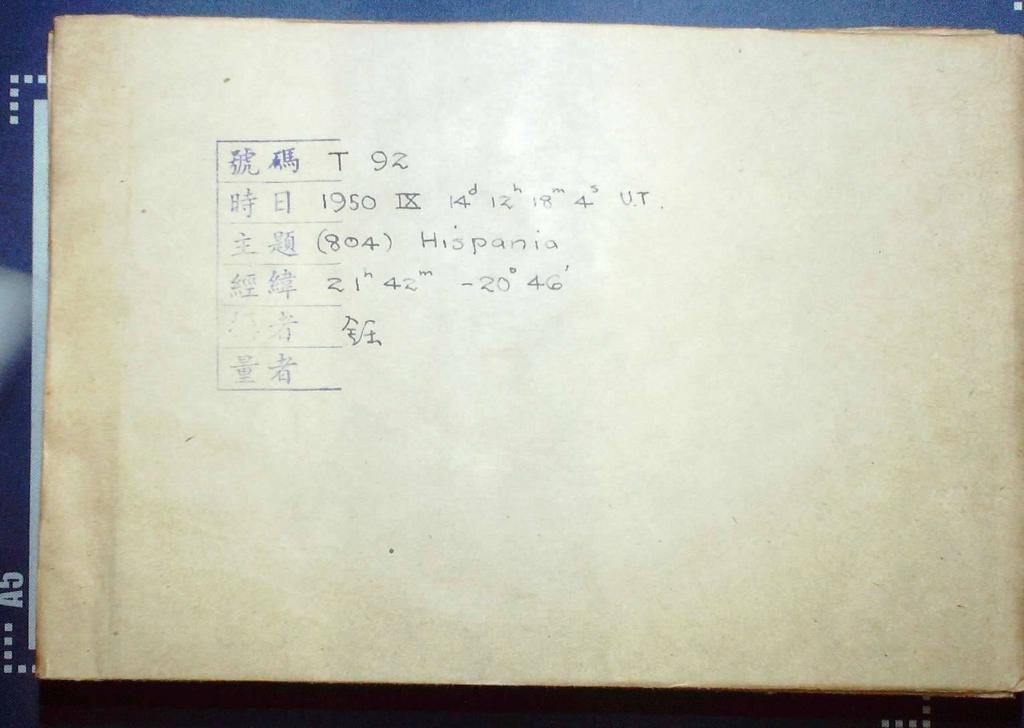 號碼 T 92
時日 1950 IX 14d 12h 18m 4s U.T.
主題 (804) Hispania
經緯 21h 42m -20° 46'
者 鈺
量者
A5